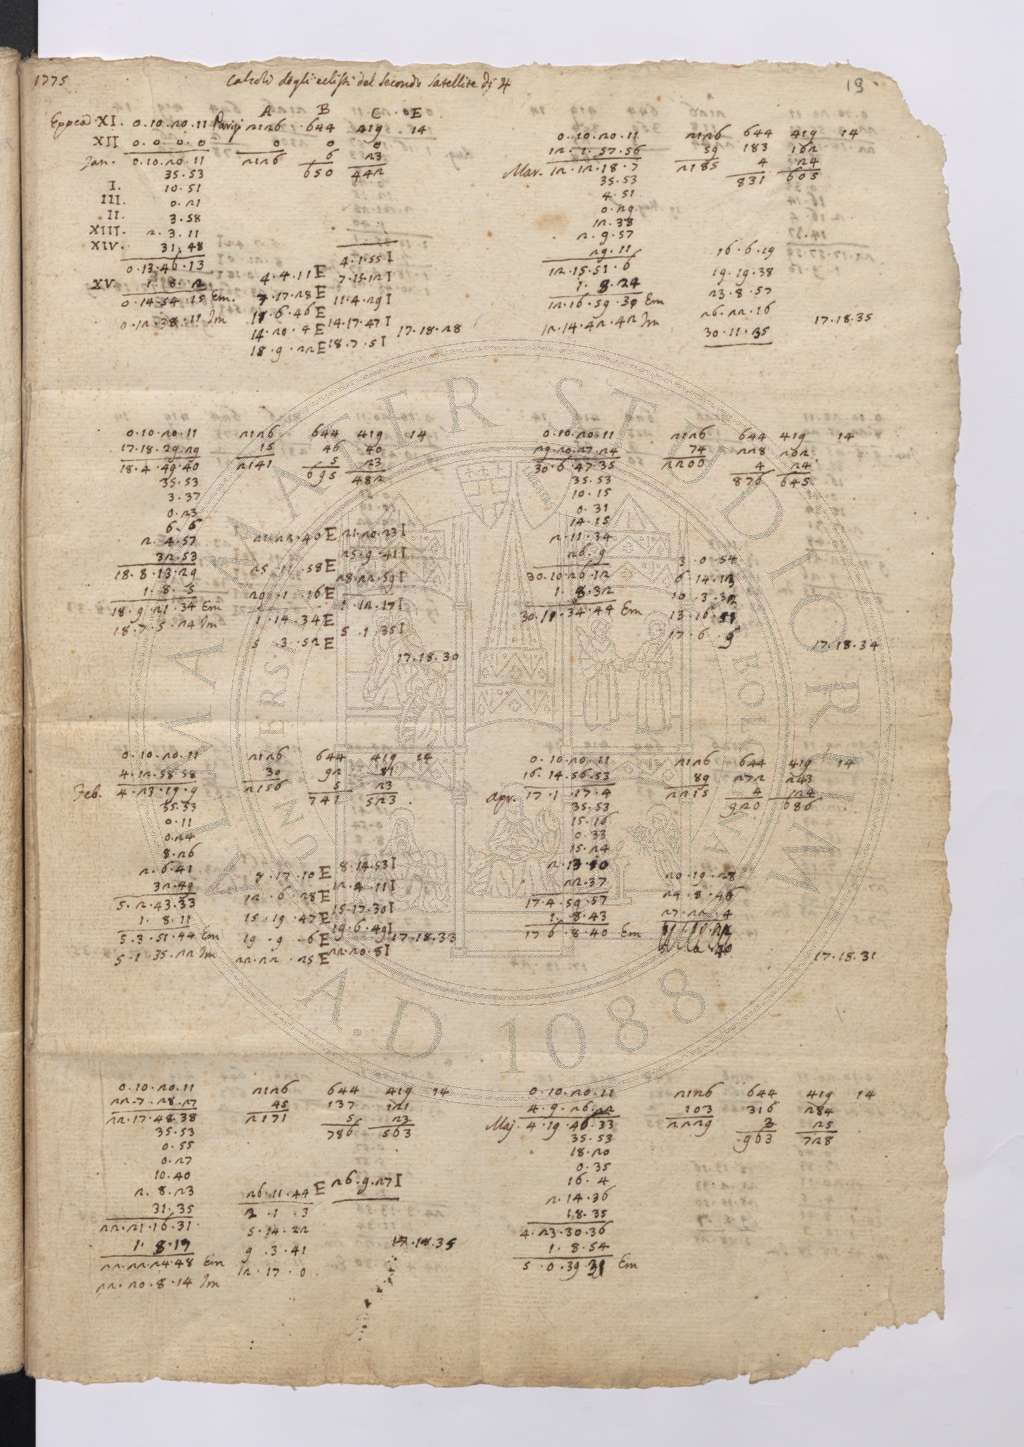 1775 Calcoli degli eclissi del secondo satellite di ♃ 19
A B C E
Epoca XI. 0.10.20.11 Parigi 2126 644 419 14
XII 0.0.0.0 0 6 23
Jan. 0.10.20.11 2126 650 442
35.53
I. 10.51
III. 0.21
II. 3.58
XIII. 2.3.11
XIV. 31.48
0.13.46.13
XV. 1.8.2
0.14.54.15 Em.
0.12.38.11 Im
4.1.55 I
4.4.11 E 7.15.12 I
7.17.28 E 11.4.29 I
11.6.46 E 14.17.47 I
14.20.4 E 18.7.5 I 17.18.28
18.9.22 E
0.10.20.11 2126 644 419 14
12.1.57.56 59 183 162
Mar. 12.12.18.7 2185 4 24
35.53 831 605
4.51
0.29
12.38
2.9.57
29.11
12.15.51.6
1.8.24
12.16.59.30 Em
12.14.42.42 Im
16.6.19
19.19.38
23.8.57
26.22.16
30.11.35
17.18.35
0.10.20.11 2126 644 419 14
17.18.29.29 15 46 40
18.4.49.40 2141 5 23
35.53 695 482
3.37
0.23
6.6
2.4.57
32.53
18.8.13.29
1.8.5
18.9.21.34 Em
18.7.5.24 Im
21.22.40 E 21.20.23 I
25.11.58 E 25.9.41 I
29.1.16 E 28.22.59 I
1.14.34 E 1.12.17 I
5.3.52 E 5.1.35 I
17.18.30
0.10.20.11 2126 644 419 14
29.20.27.24 74 228 202
30.6.47.35 2200 4 24
35.53 876 645
10.15
0.31
14.15
2.11.34
26.9
30.10.26.12
1.8.32
30.11.34.44 Em
3.0.54
6.14.13
10.3.32
17.6.9
17.18.34
0.10.20.11 2126 644 419 14
4.12.58.58 30 92 81
Feb. 4.23.19.9 2156 5 23
35.53 741 523
0.11
0.24
8.26
2.6.41
32.49
5.2.43.33
1.8.11
5.3.51.44 Em
5.1.35.22 Im
8.17.10 E 8.14.53 I
12.6.28 E 12.4.11 I
15.19.47 E 15.17.30 I
19.9.6 E 19.6.49 I 17.18.33
22.22.25 E 22.20.8 I
0.10.20.11 2126 644 419 14
16.14.56.53 89 272 243
Apr. 17.1.17.4 2215 4 24
35.53 920 686
15.16
0.33
15.24
2.13.10
22.37
17.4.59.57
1.8.43
17.6.8.40 Em
20.19.28
24.8.46
27.22.4
17.18.31
0.10.20.11 2126 644 419 14
22.7.28.27 45 137 121
22.17.48.38 2171 5 23
35.53 786 563
0.55
0.27
10.40
2.8.23
31.35
22.21.16.31
1.8.17
22.22.24.48 Em
22.20.8.14 Im
26.11.44 E 26.9.27 I
2.1.3
5.14.22
9.3.41
12.17.0
17.18.35
0.10.20.11 2126 644 419 14
4.9.26.22 103 316 284
Maj. 4.19.46.33 2229 3 25
35.53 963 728
18.20
0.35
16.4
2.14.36
18.35
4.23.30.36
1.8.54
5.0.39.31 Em